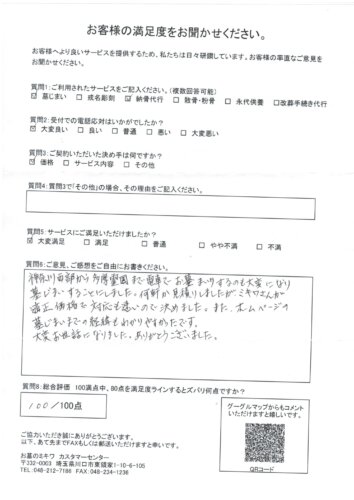 お客様の満足度をお聞かせください。
お客様へより良いサービスを提供するため、私たちは日々研鑽しています。お客様の率直なご意見を
お聞かせください。
質問1:ご利用されたサービスをご記入ください。(複数回答可能)
☑ 墓じまい □ 戒名彫刻 ☑ 納骨代行 □ 散骨・粉骨 □ 永代供養 □改葬手続き代行
質問2:受付での電話応対はいかがでしたか?
☑ 大変良い □ 良い □ 普通 □ 悪い □ 大変悪い
質問3:ご契約いただいた決め手は何ですか?
☑ 価格 □ サービス内容 □ その他
質問4:質問3で「その他」の場合、その理由をご記入ください。
質問5:サービスにご満足いただけましたか?
☑ 大変満足 □ 満足 □ 普通 □ やや不満 □ 不満
質問6:ご意見、ご感想をご自由にお書きください。
神奈川西部から多摩霊園まで電車でお墓まいりするのも大変になり
墓じまいすることにしました。何軒か見積りしましたがミキワさんが
適正価格で対応も速いので決めました。また、ホームページの
墓じまいまでの経緯もわかりやすかったです。
大変お世話になりました。ありがとうございました。
質問8:総合評価 100満点中、80点を満足度ラインするとズバリ何点ですか?
100/100点
グーグルマップからもコメント
いただけますと嬉しいです。
QRコード
ご協力いただき誠にありがとうございます。
以下、あて先までFAXもしくは郵送いただけますと幸いです。
お墓のミキワ カスタマーセンター
〒332-0003 埼玉県川口市東領家1-10-6-105
TEL 048-212-7186 FAX:048-234-1236